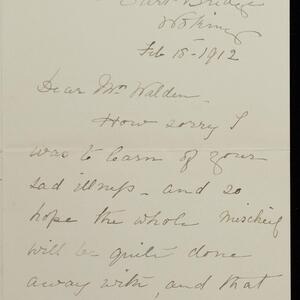 Bridge
Woking
Feb 18 - 1912
Dear Mr Walden -
How sorry I
was to learn of your
sad illness - and so
hope the whole mischief
will be quite done
away with, and that